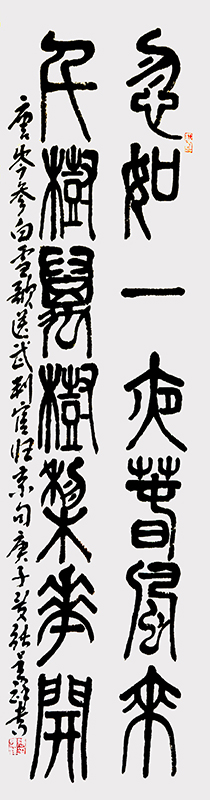 忽如一夜春風來
千樹萬樹梨華開
唐岑参白雪歌送武判官归京句庚子夏张书